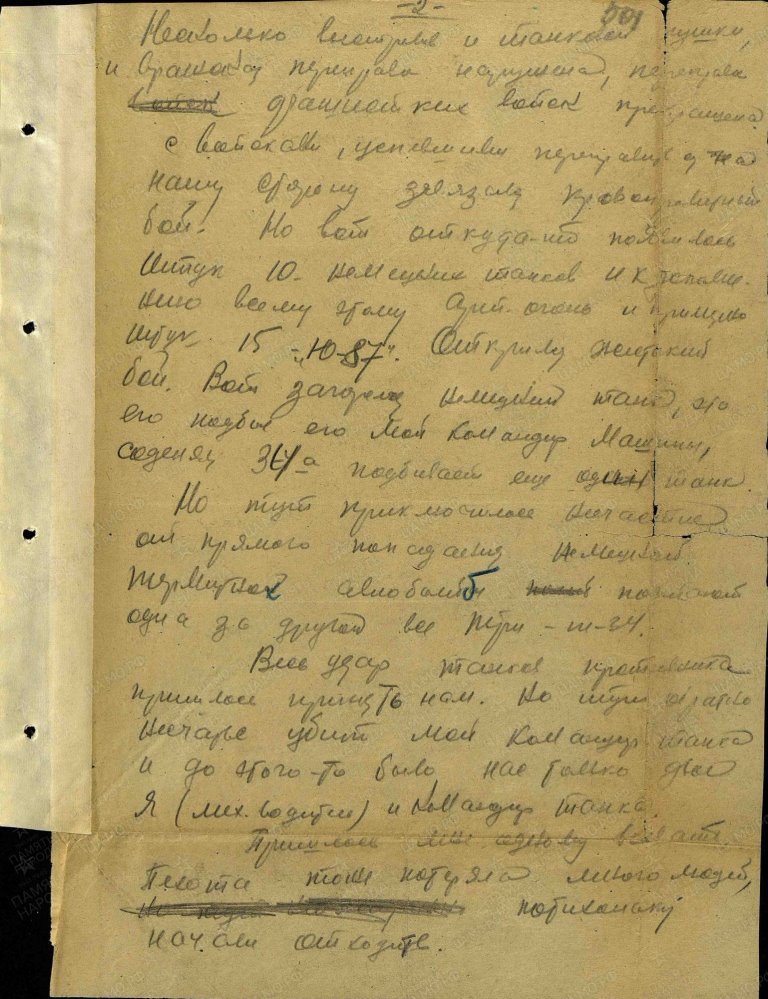 -2-
Несколько выстрелов и танковой пушки,
и вражеская переправа нарушена, переправа
фашистких войск прекращена
с войсками, успевшими переправится на
нашу сторону завязался кровопролитный
бой. Но вот откуда-то появилось
штук 10 немецких танков и к дополне-
нию всему этому арт. огонь и примерно
штук 15 "Ю-87". Открылся жестокий
бой. Вот загорелся немецкий танк, это
его подбил его мой командир машины,
подбивает еще один танк
Но тут приключилось несчастие
от прямого попадания немецкой
термитной авиабомбы
одна за другой все три - т-34.
Весь удар танков противника
пришлось принять нам. Но тут обратно
несчастье убит мой командир танка
и до этого-то было нас только двое
я (мех. водитель) и командир танка.
Пришлось мне одному
Пехота тоже потеряла много людей,
потихоньку
начали отходить.